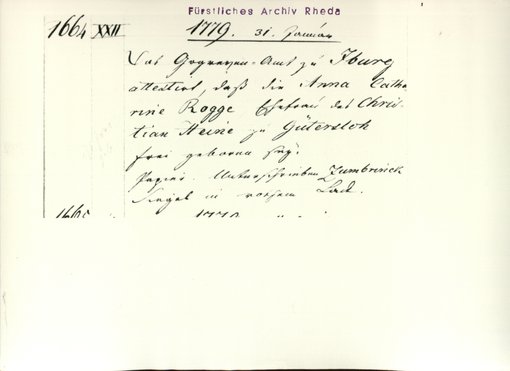 Fürstliches Archiv Rheda
1664 XXII 1779. 31. Januar
Das Gogreven-Amt zu Iburg
attestirt, daß die Anna Catha
rine Rogge Ehefrau des Chris-
tian Heine zu Gütersloh
frei geboren sey.
Papier. Unterschrieben Zumbrinck
Siegel in rothem Lack.
1665